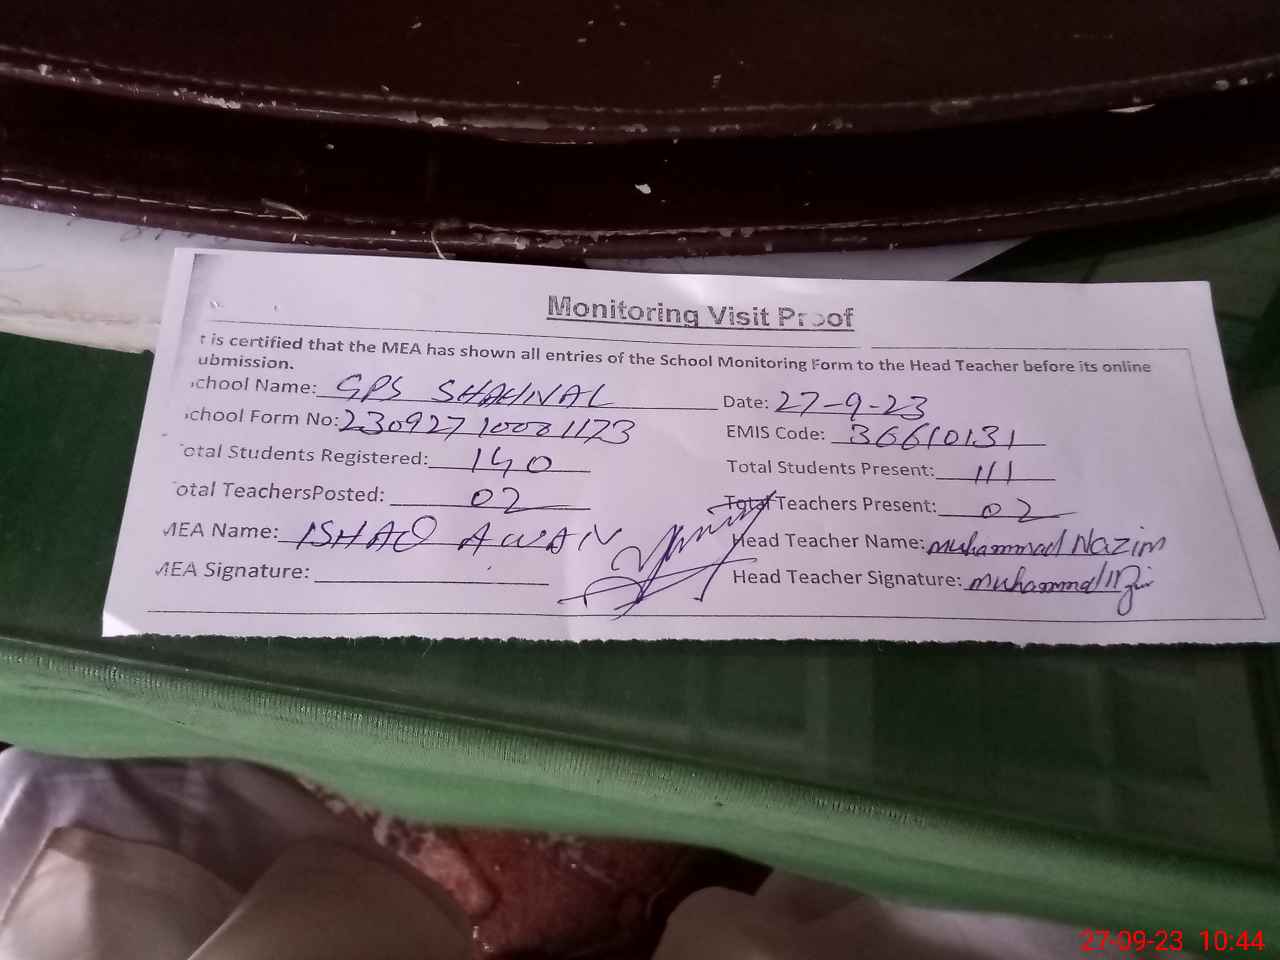 Monitoring Visit Proof
t is certified that the MEA has shown all entries of the School Monitoring Form to the Head Teacher before its online
ubmission.
chool Name: GPS SHAHNAL Date: 27-9-23
chool Form No: EMIS Code: 36610131
otal Students Registered: 140 Total Students Present: 111
otal TeachersPosted: 02 Total Teachers Present: 02
MEA Name: ISHAQ AWAN Head Teacher Name: muhammad Nazim
MEA Signature: Head Teacher Signature: muhammad
27-09-23 10:44